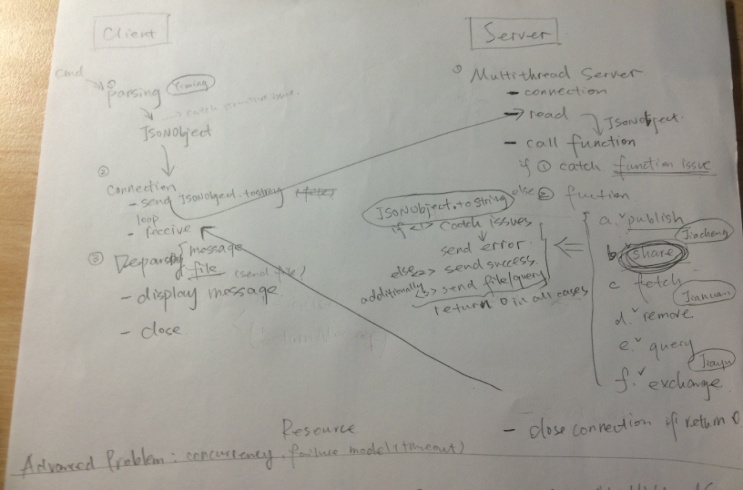 Client
cmd
① parsing Yiming
JSONObject
②
Connection
- send JSONObject.toString
loop
- receive
③ message
file (send file?)
- display message
- close
Server
① Multithread Server
- connection
- read JSONObject.
- call function
if ① catch function issue
else ② fuction
a. publish
Jiacheng
b. share
c fetch
Jianuan
d. remove
e. query
Jiayu
f. exchange
JSONObject.tostring
if <1> Catch issues
send error.
else <2> send success.
additionally <3> send file/query
return 0 in all cases
- close connection if return 0
Resource
Advanced Problem: concurrency, failure model (timeout)